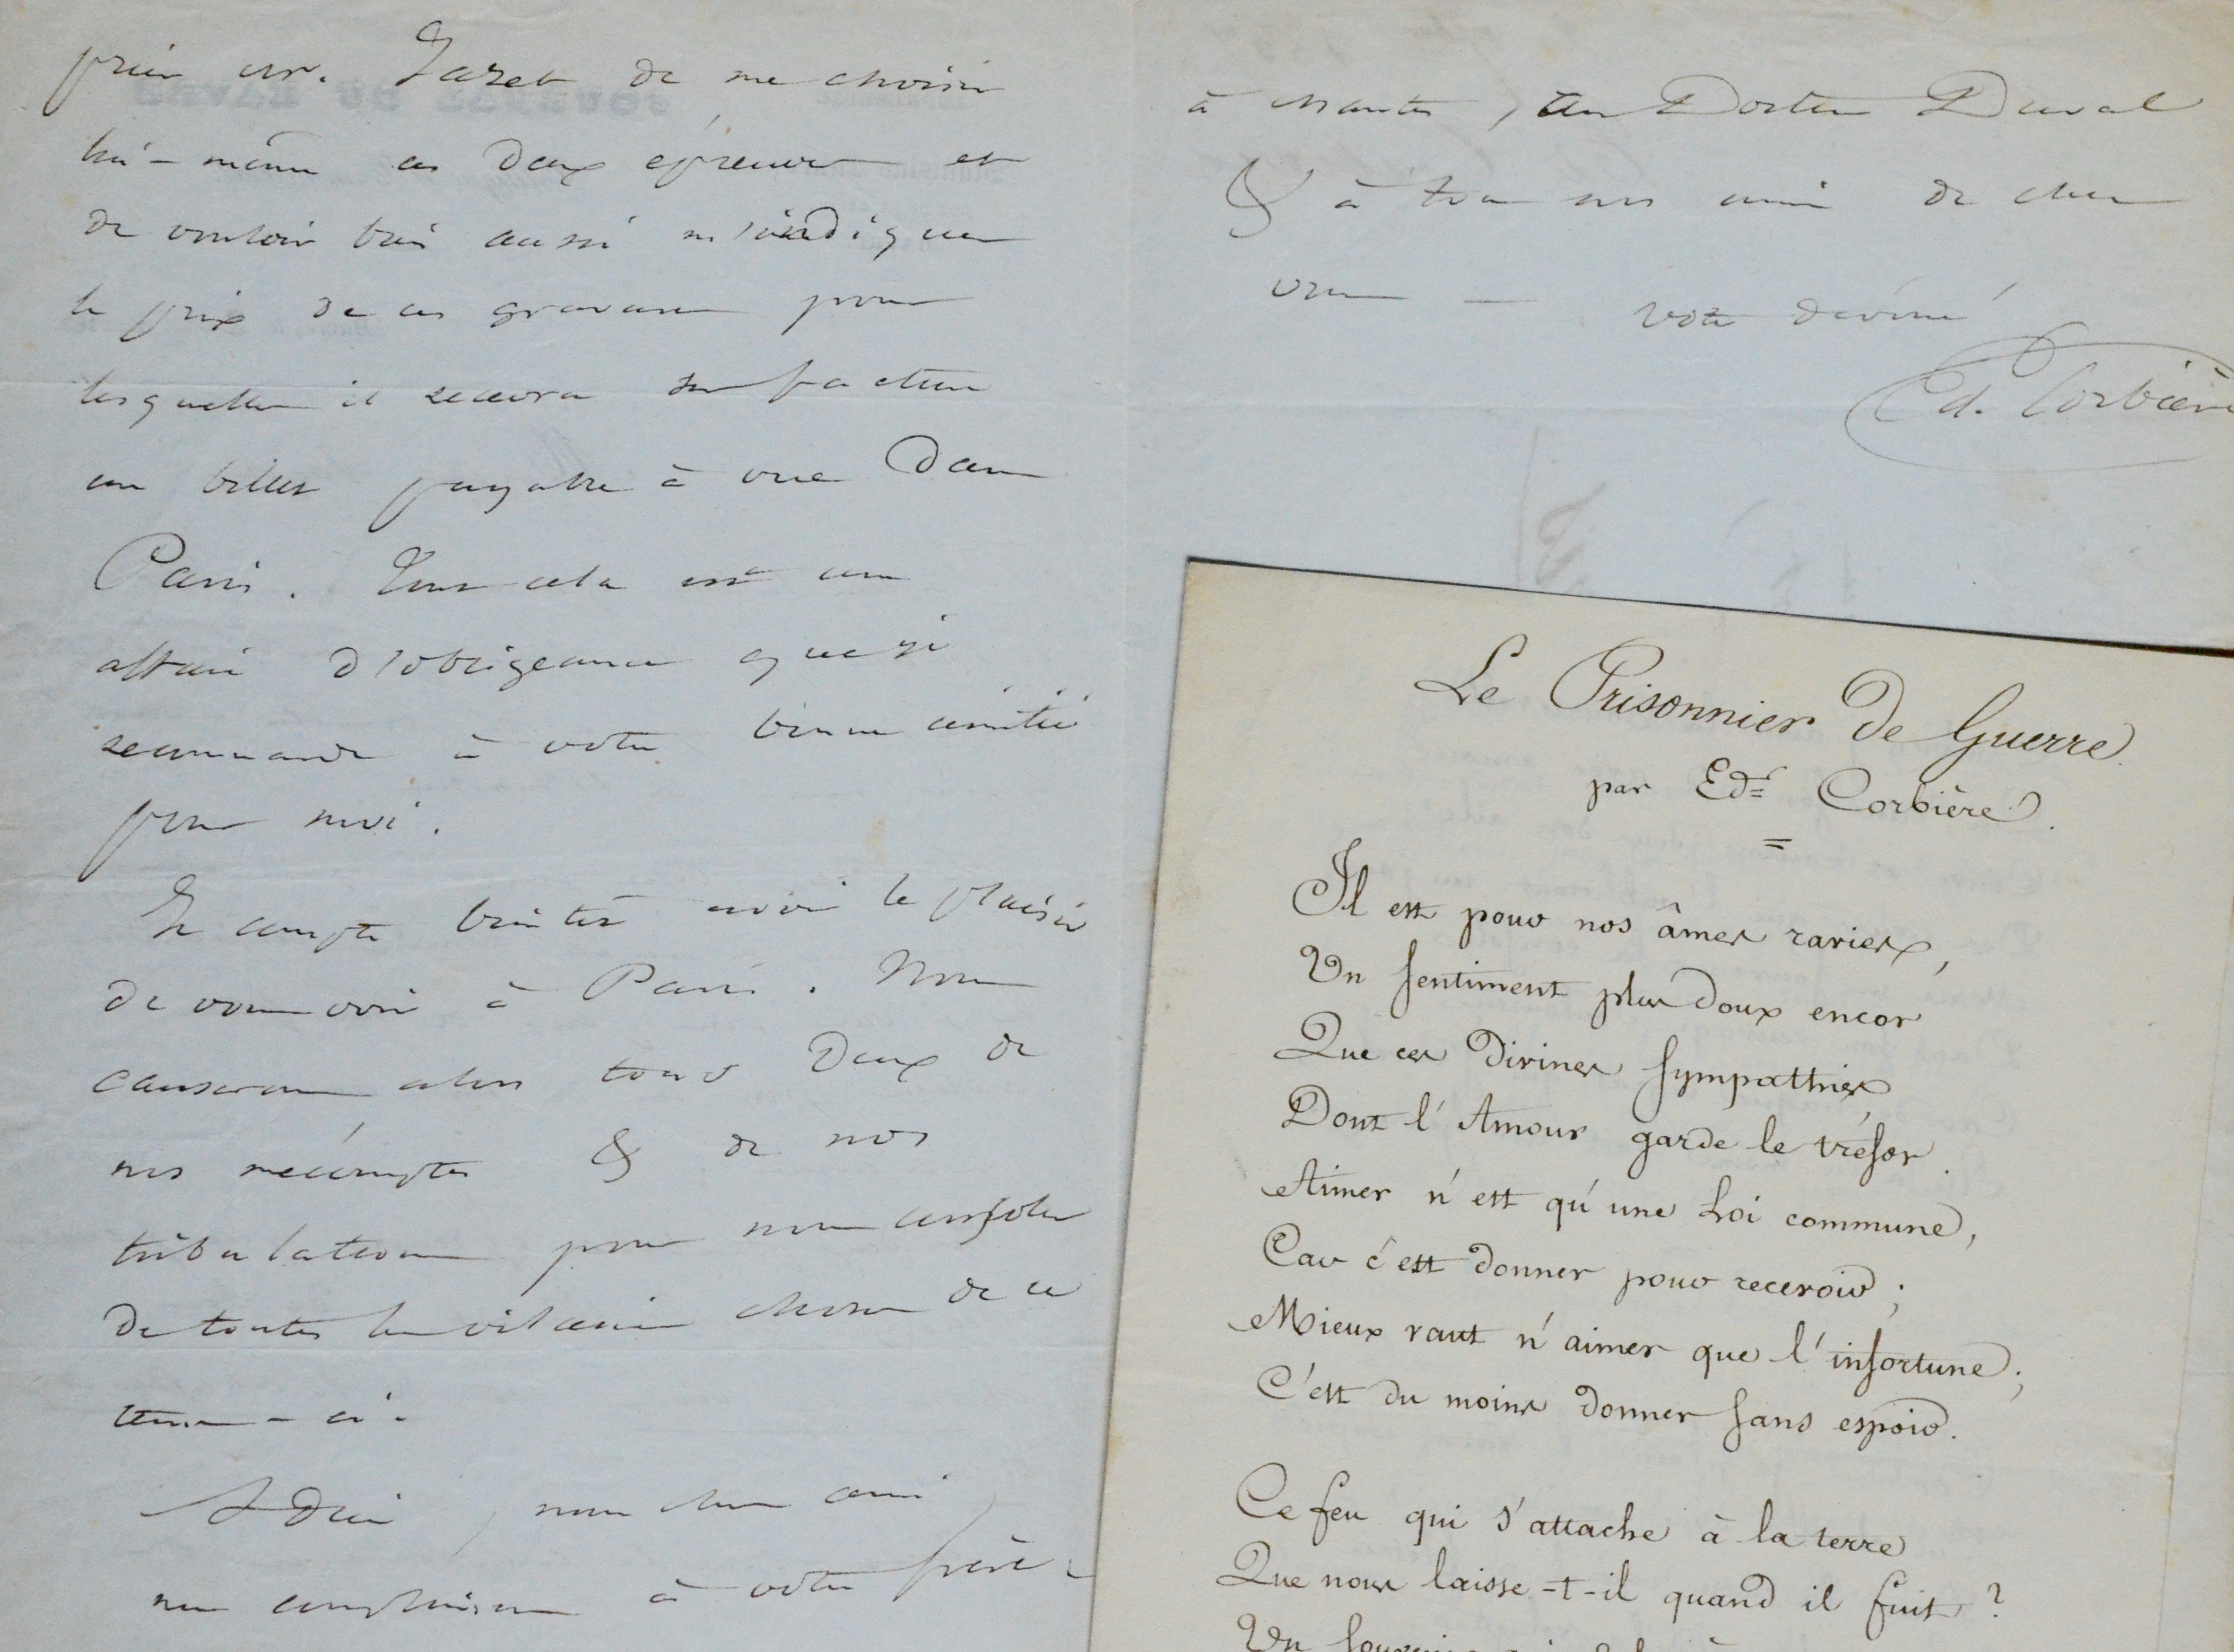 prier mr. Jazet de me choisir
lui-même ces deux épreuves et
de vouloir bien aussi m'indiquer
le prix de ces gravures pour
lesquelles il recevra sur facture
un billet payable à vue dans
Paris. Tout cela est une
affaire d'obligeance que je
recommande à votre bonne amitié
pour moi.
Je compte bientôt avoir le plaisir
de vous voir à Paris. Nous
causerons alors tous deux de
nos mécomptes & de nos
tribulations pour nous consoler
de toutes les vilaines choses de ce
temps-ci.
Adieu, mon cher ami,
mes complimens à votre frère
à Nantes, au Docteur Duval
& à tous nos amis de chez
vous — votre dévoué
Ed. Corbière
Le Prisonnier de Guerre.
par Edd. Corbière.
=
Il est pour nos âmes ravies,
Un sentiment plus doux encor
Que ces divines sympathies
Dont l'Amour garde le trésor.
Aimer n'est qu'une Loi commune,
Car c'est donner pour recevoir;
Mieux vaut n'aimer que l'infortune;
C'est du moins donner sans espoir.
Ce feu qui s'attache à la terre
Que nous laisse-t-il quand il fuit?
Un